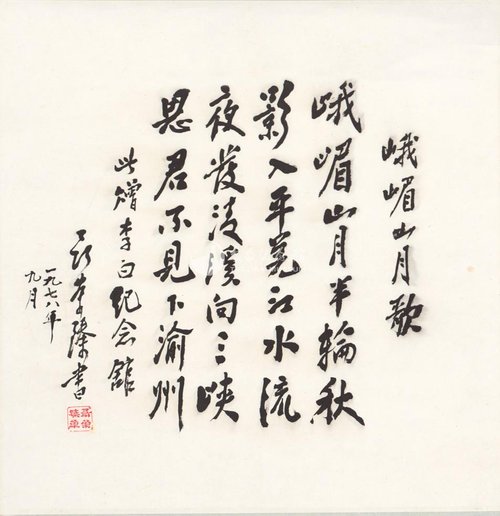 峨嵋山月歌
峨嵋山月半輪秋
影入平羌江水流
夜發清溪向三峡
思君不見下渝州
此赠李白纪念館
聂荣臻書
一九七八年
九月